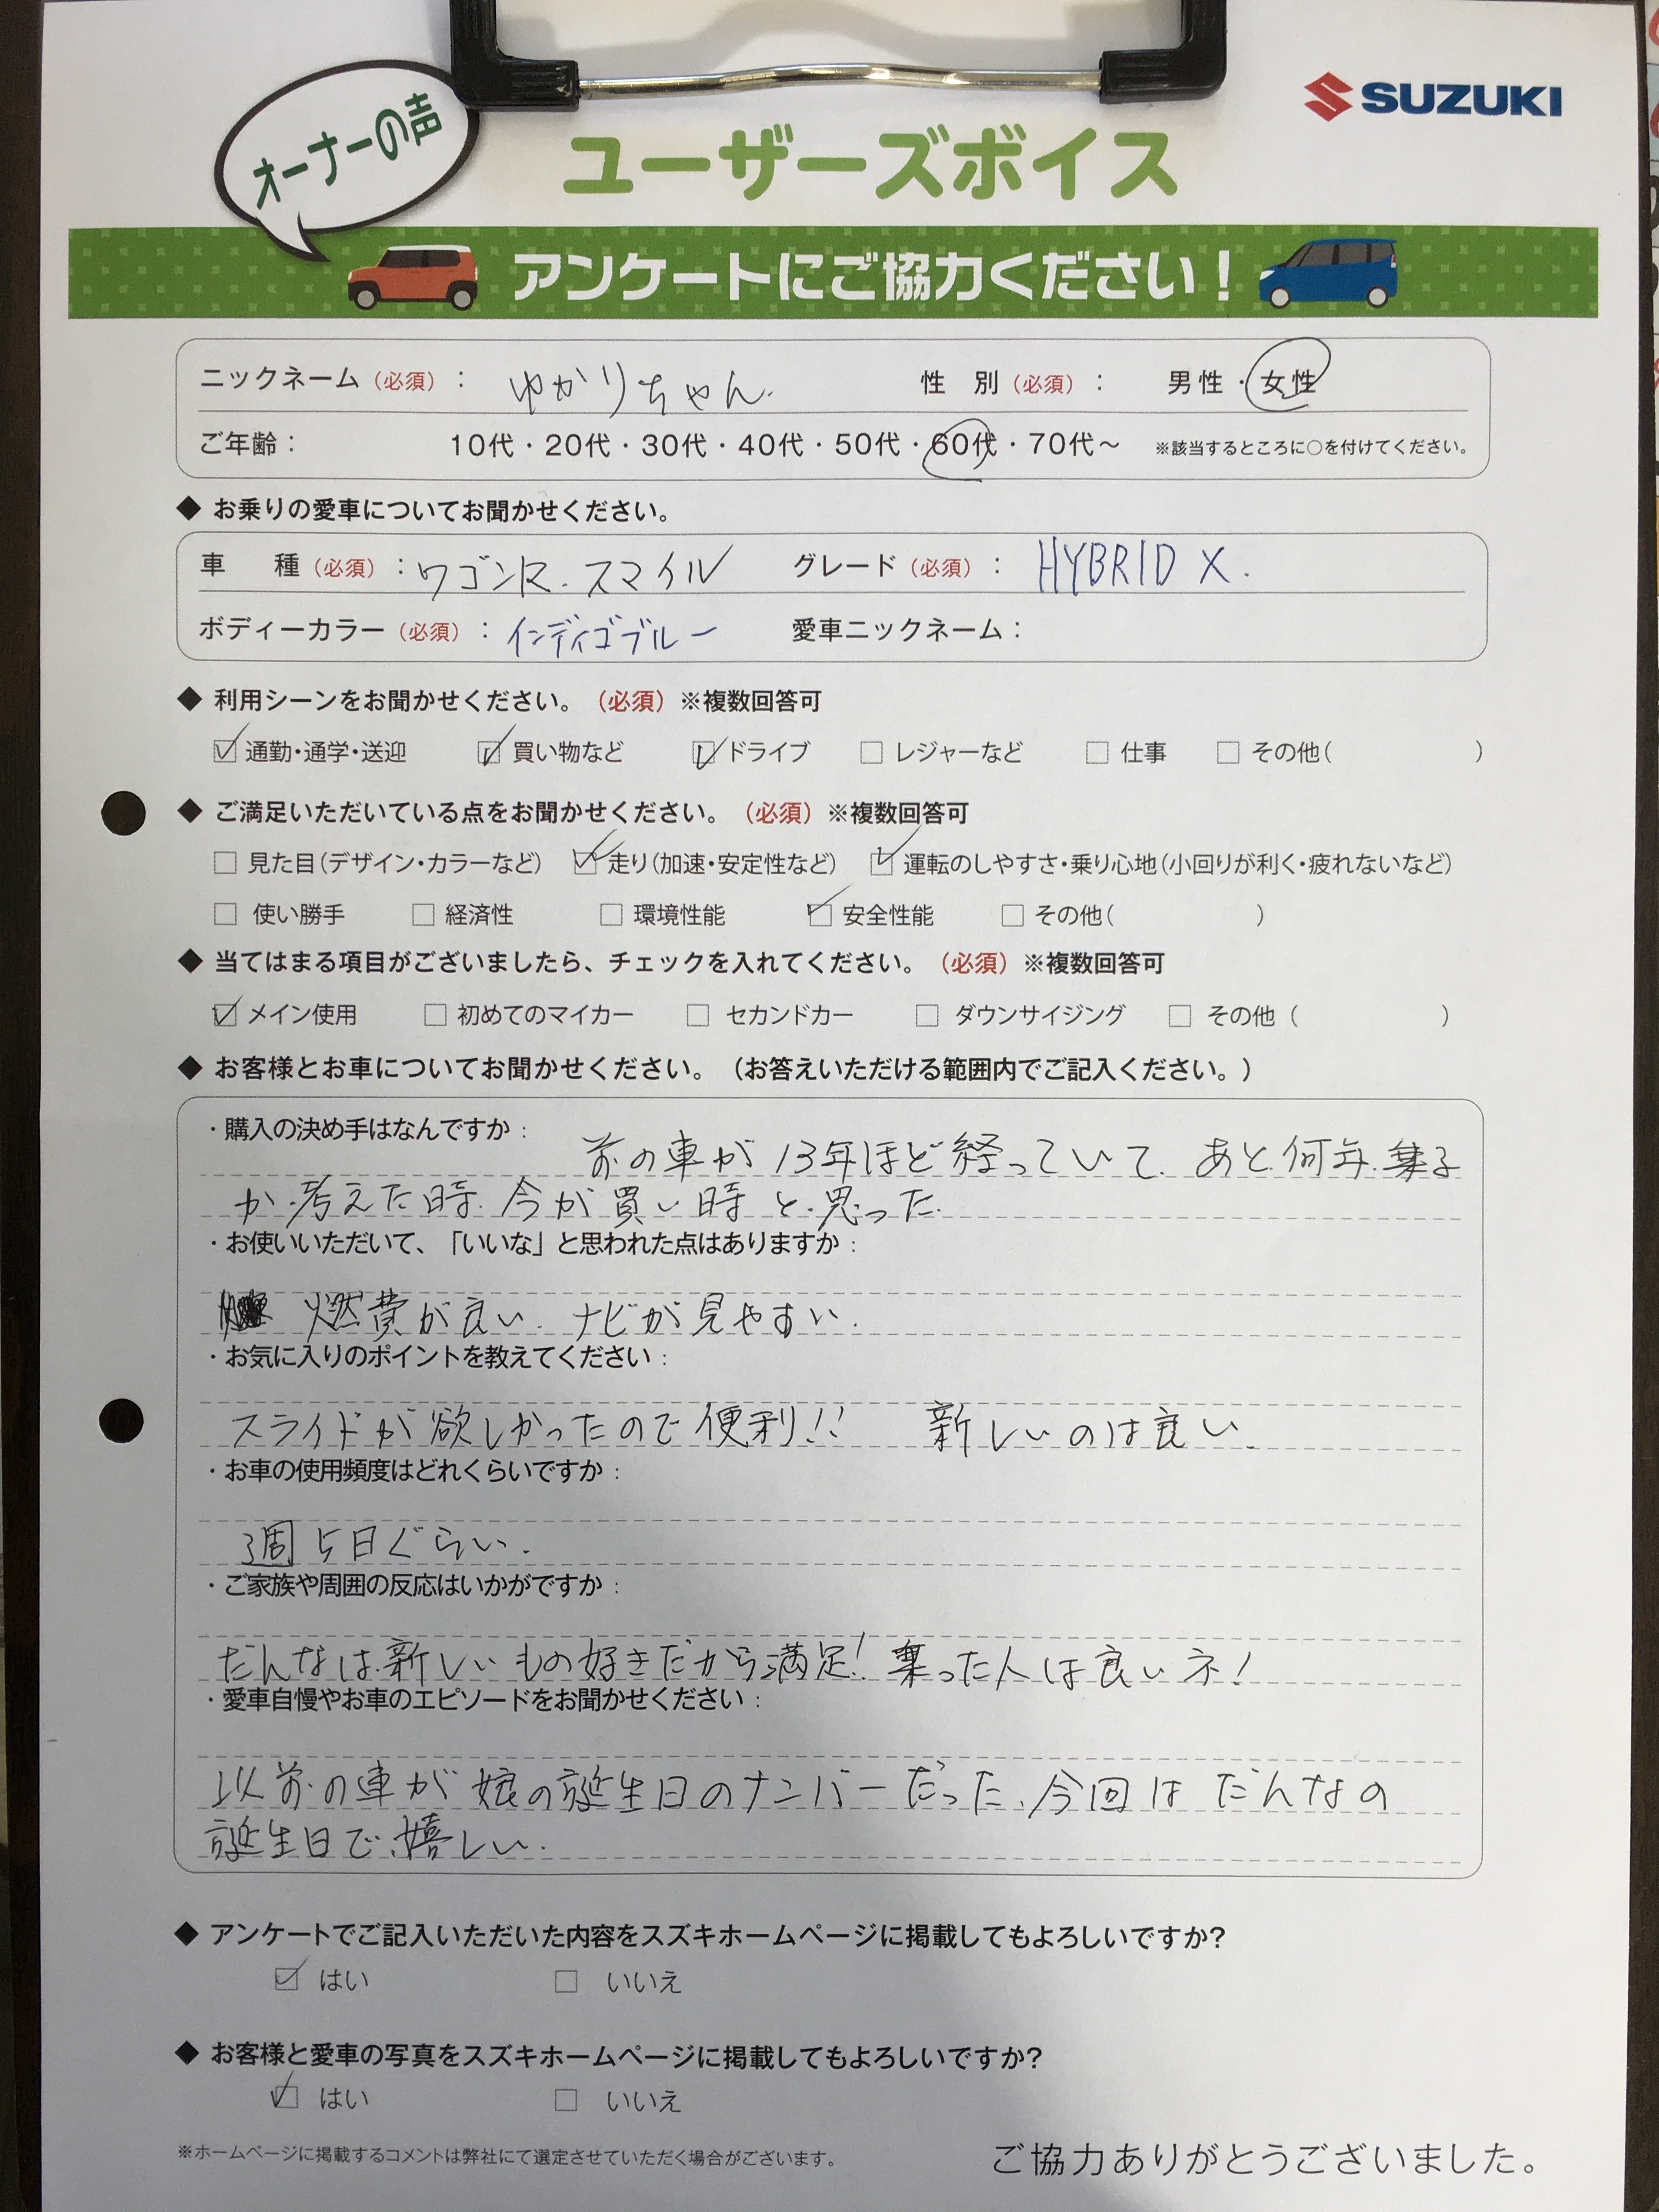 SUZUKI
オーナーの声
ユーザーズボイス
アンケートにご協力ください！
ニックネーム（必須）： ゆかりちゃん. 性 別（必須）： 男性・女性
ご年齢： 10代・20代・30代・40代・50代・60代・70代～ ※該当するところに○を付けてください。
◆ お乗りの愛車についてお聞かせください。
車 種（必須）：ワゴンR. スマイル グレード（必須）： HYBRID X.
ボディーカラー（必須）： インディゴブルー 愛車ニックネーム：
◆ 利用シーンをお聞かせください。（必須）※複数回答可
☑ 通勤・通学・送迎 ☑ 買い物など ☑ ドライブ □ レジャーなど □ 仕事 □ その他（ ）
◆ ご満足いただいている点をお聞かせください。（必須）※複数回答可
□ 見た目（デザイン・カラーなど） ☑ 走り（加速・安定性など） ☑ 運転のしやすさ・乗り心地（小回りが利く・疲れないなど）
□ 使い勝手 □ 経済性 □ 環境性能 ☑ 安全性能 □ その他（ ）
◆ 当てはまる項目がございましたら、チェックを入れてください。（必須）※複数回答可
☑ メイン使用 □ 初めてのマイカー □ セカンドカー □ ダウンサイジング □ その他（ ）
◆ お客様とお車についてお聞かせください。（お答えいただける範囲内でご記入ください。）
・購入の決め手はなんですか： 前の車が13年ほど経っていて. あと何年. 乗る
か考えた時. 今が買い時と思った.
・お使いいただいて、「いいな」と思われた点はありますか：
燃費が良い. ナビが見やすい.
・お気に入りのポイントを教えてください：
スライドが欲しかったので便利!! 新しいのは良い.
・お車の使用頻度はどれくらいですか：
週5日ぐらい.
・ご家族や周囲の反応はいかがですか：
だんなは新しいもの好きだから満足! 乗った人は良いネ!
・愛車自慢やお車のエピソードをお聞かせください：
以前の車が娘の誕生日のナンバーだった. 今回はだんなの
誕生日で嬉しい.
◆ アンケートでご記入いただいた内容をスズキホームページに掲載してもよろしいですか？
☑ はい □ いいえ
◆ お客様と愛車の写真をスズキホームページに掲載してもよろしいですか？
☑ はい □ いいえ
※ホームページに掲載するコメントは弊社にて選定させていただく場合がございます。
ご協力ありがとうございました。